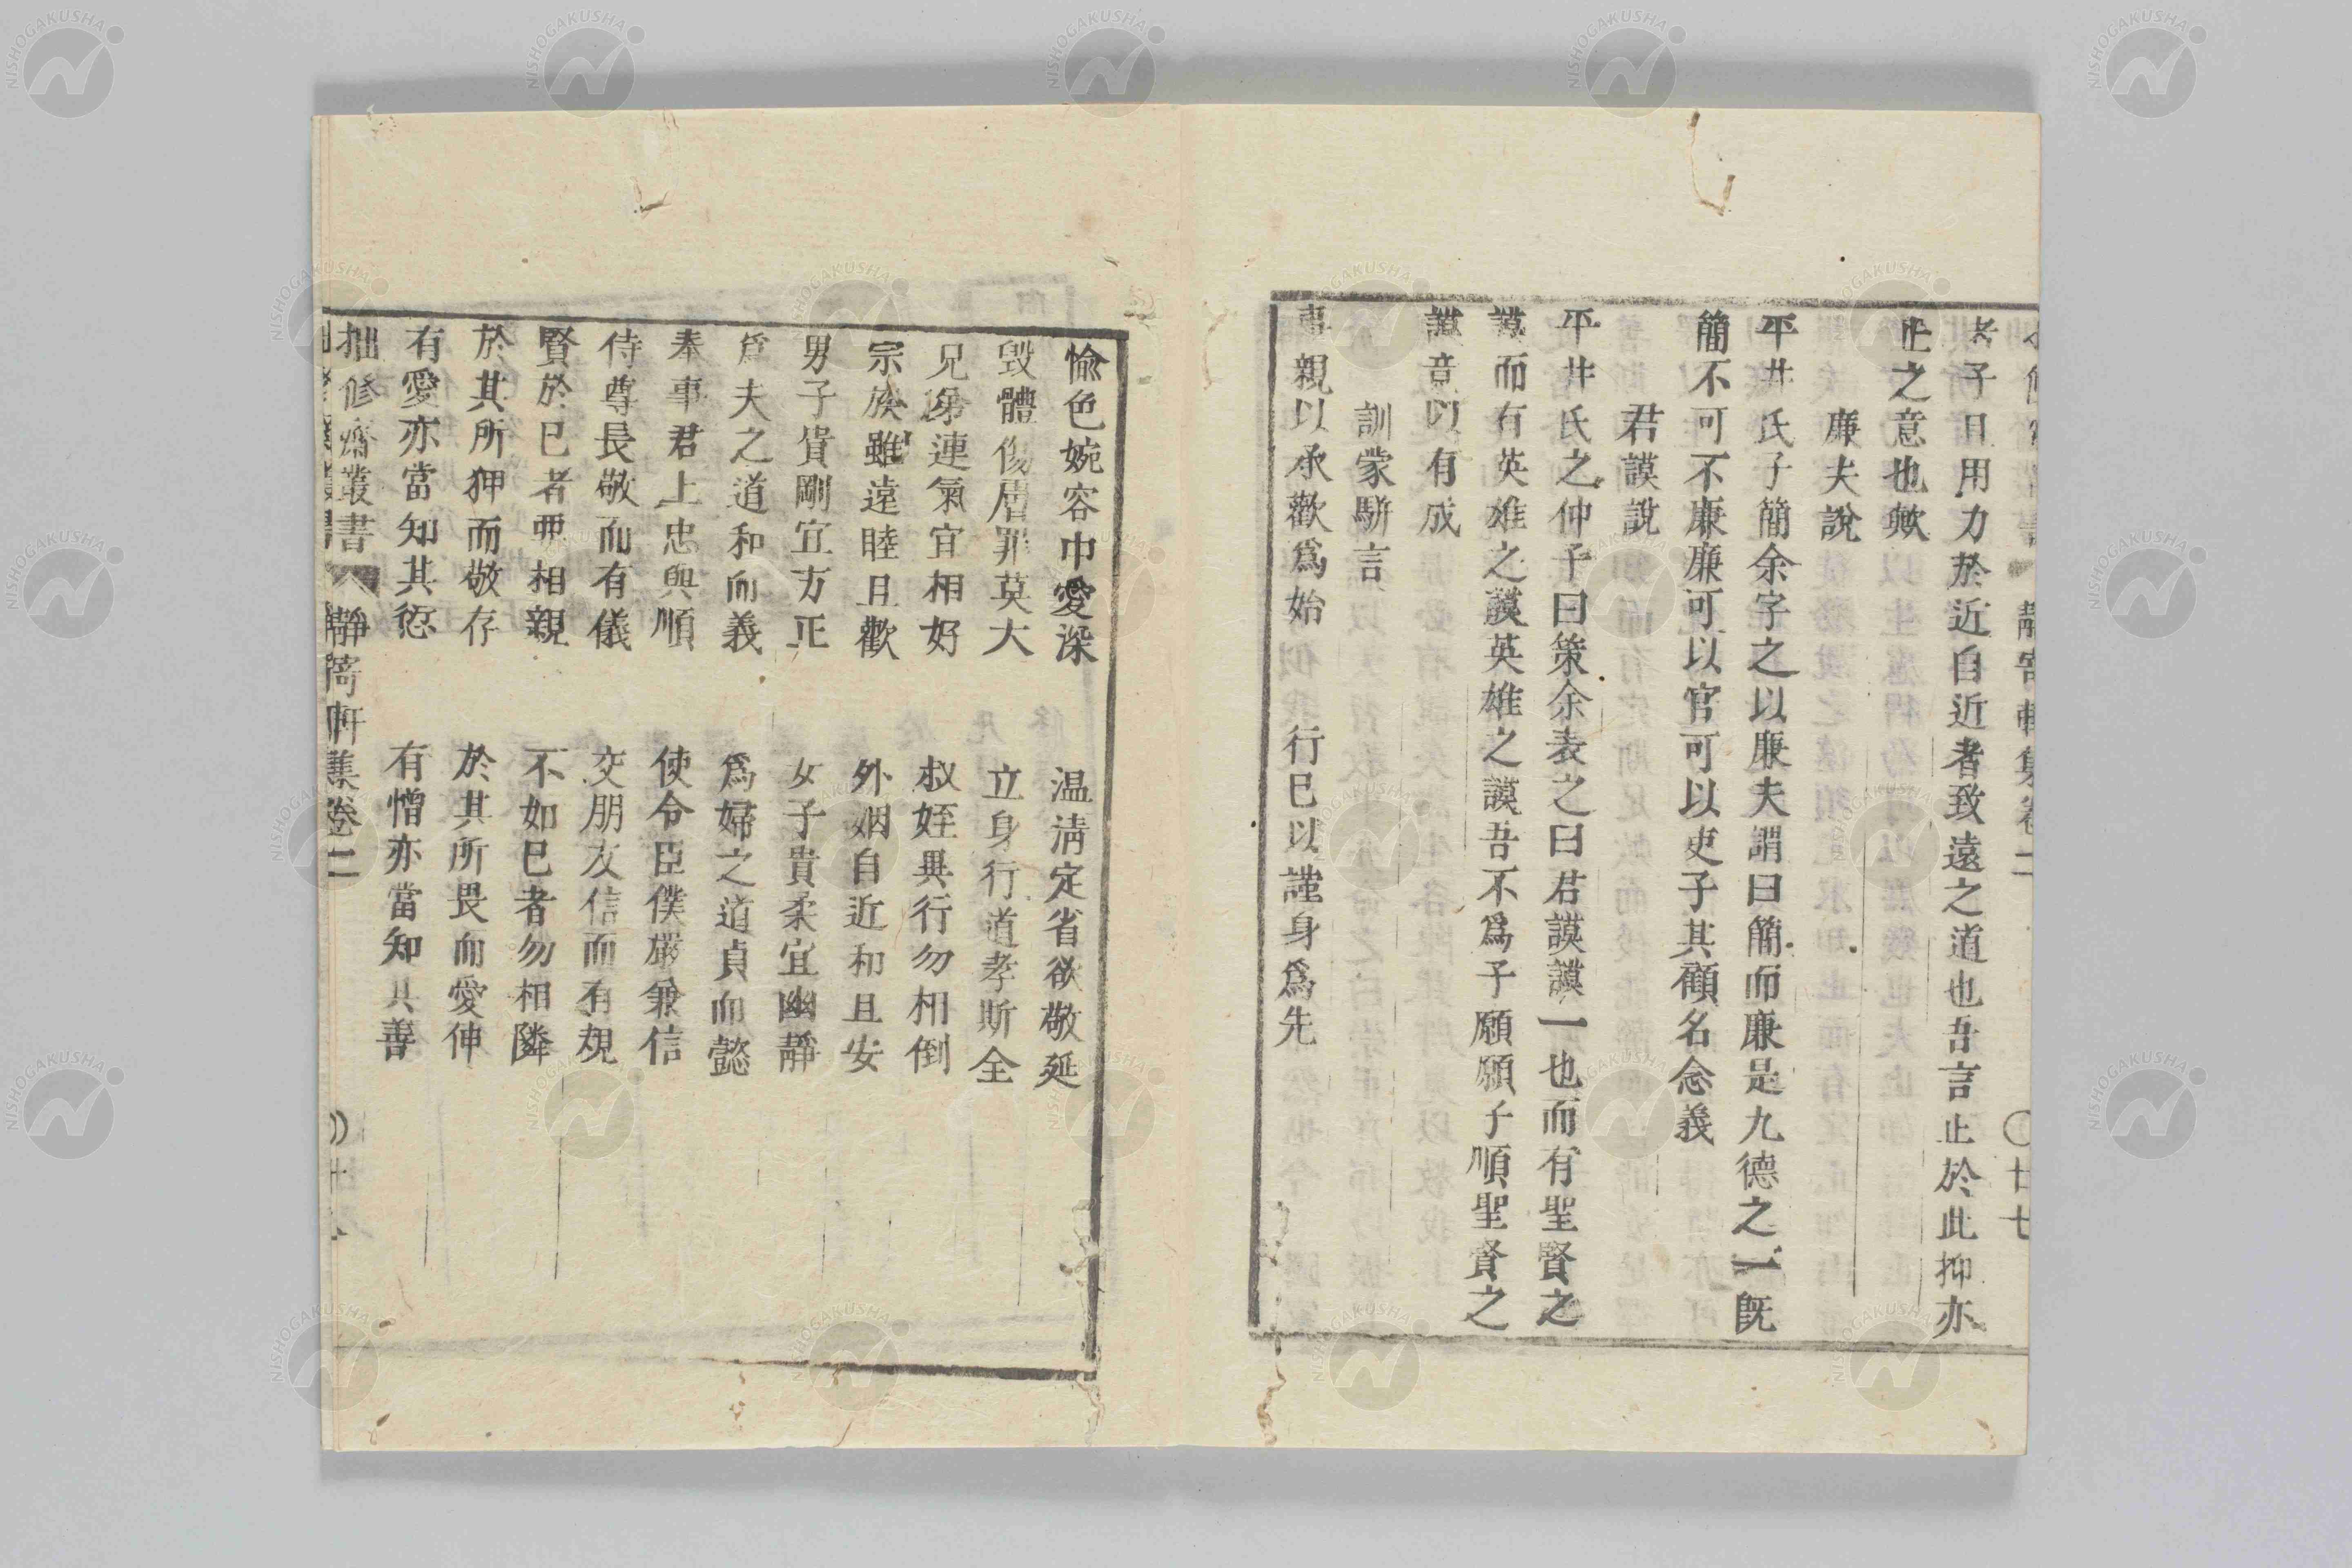 子且用力於近自近者致遠之道也吾言止於此抑亦
止之意也歟
廉夫說
平井氏子簡余字之以廉夫謂曰簡而廉是九德之一既
簡不可不廉廉可以官可以吏子其顧名念義
君謨說
平井氏之仲子曰策余表之曰君謨謨一也而有聖賢之
謨而有英雄之謨英雄之謨吾不爲子願願子順聖賢之
謨意以有成
訓蒙駢言
事親以承歡爲始 行已以謹身爲先
愉色婉容中愛深 温凊定省欲敬延
毀體傷唐罪莫大 立身行道孝斯全
兄弟連氣宜相好 叔姪異行勿相倒
宗族雖遠睦且歡 外姻自近和且安
男子貴剛宜方正 女子貴柔宜幽靜
爲夫之道和而義 爲婦之道貞而懿
奉事君上忠與順 使令臣僕嚴兼信
侍尊長敬而有儀 交朋友信而有規
賢於已者要相親 不如已者勿相隣
於其所狎而敬存 於其所畏而愛伸
有愛亦當知其惡 有憎亦當知其善
拙修齋叢書 靜寄軒集卷二